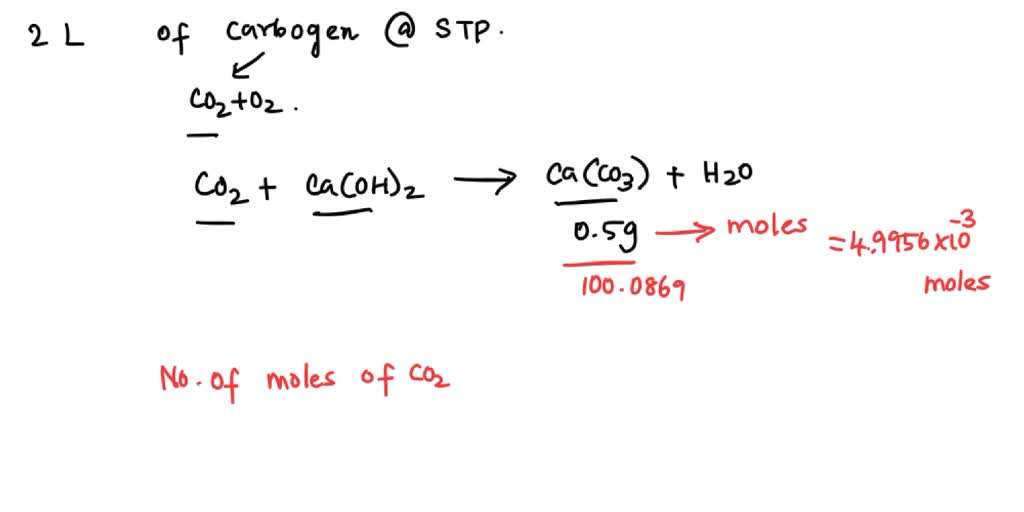 2 L of carbogen @ STP.
CO2+O2.
CO2 + Ca(OH)2 → Ca(CO3) + H2O
0.5g → moles = 4.9956×10^-3
100.0869 moles
No. of moles of CO2